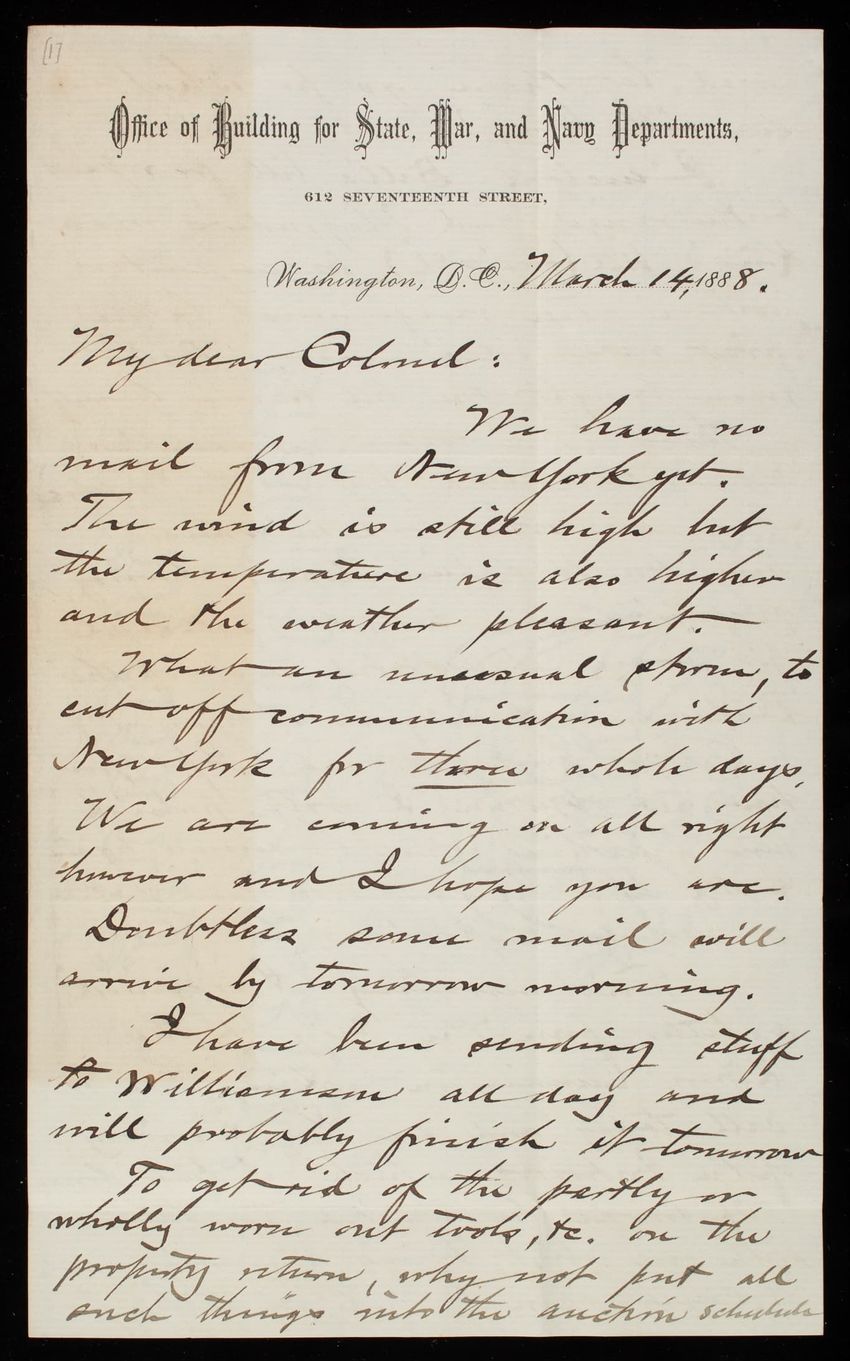 [1]
Office of Building for State, War, and Navy Departments,
612 SEVENTEENTH STREET,
Washington, D. C., March 14, 1888.
My dear Colonel:
We have no
mail from New York yet.
The wind is still high but
the temperature is also higher
and the weather pleasant.
What an unusual storm, to
cut off communication with
New York for three whole days.
We are coming on all right
however and I hope you are.
Doubtless some mail will
arrive by tomorrow morning.
I have been sending stuff
to Williamson all day and
will probably finish it tomorrow
To get rid of the partly or
wholly worn out tools, &c. on the
property return, why not put all
such things into the auction schedule